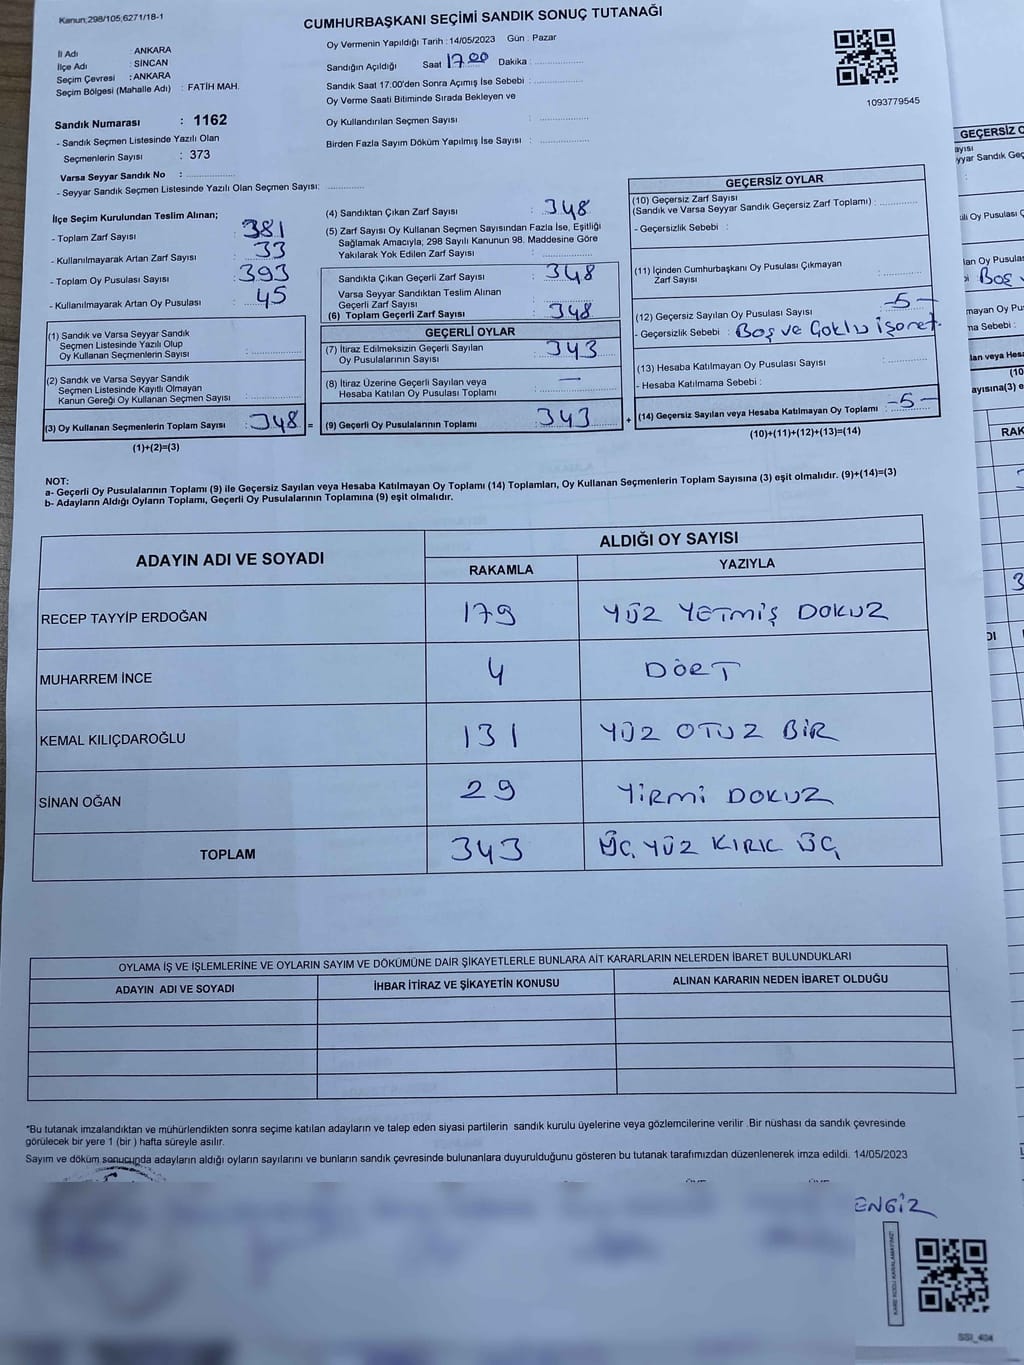 Kanun;298/105;6271/18-1
CUMHURBAŞKANI SEÇİMİ SANDIK SONUÇ TUTANAĞI
İl Adı : ANKARA
İlçe Adı : SİNCAN
Seçim Çevresi : ANKARA
Seçim Bölgesi (Mahalle Adı) : FATİH MAH.
Oy Vermenin Yapıldığı Tarih : 14/05/2023 Gün : Pazar
Sandığın Açıldığı Saat 17.00 Dakika :
Sandık Saat 17:00'den Sonra Açımış İse Sebebi :
Oy Verme Saati Bitiminde Sırada Bekleyen ve
Oy Kullandırılan Seçmen Sayısı :
Birden Fazla Sayım Döküm Yapılmış İse Sayısı :
1093779545
Sandık Numarası : 1162
- Sandık Seçmen Listesinde Yazılı Olan
Seçmenlerin Sayısı : 373
Varsa Seyyar Sandık No :
- Seyyar Sandık Seçmen Listesinde Yazılı Olan Seçmen Sayısı:
İlçe Seçim Kurulundan Teslim Alınan;
- Toplam Zarf Sayısı : 381
- Kullanılmayarak Artan Zarf Sayısı : 33
- Toplam Oy Pusulası Sayısı : 393
- Kullanılmayarak Artan Oy Pusulası : 45
(1) Sandık ve Varsa Seyyar Sandık
Seçmen Listesinde Yazılı Olup
Oy Kullanan Seçmenlerin Sayısı :
(2) Sandık ve Varsa Seyyar Sandık
Seçmen Listesinde Kayıtlı Olmayan
Kanun Gereği Oy Kullanan Seçmen Sayısı :
(3) Oy Kullanan Seçmenlerin Toplam Sayısı : 348 =
(1)+(2)=(3)
(4) Sandıktan Çıkan Zarf Sayısı : 348
(5) Zarf Sayısı Oy Kullanan Seçmen Sayısından Fazla İse, Eşitliği
Sağlamak Amacıyla; 298 Sayılı Kanunun 98. Maddesine Göre
Yakılarak Yok Edilen Zarf Sayısı :
Sandıkta Çıkan Geçerli Zarf Sayısı : 348
Varsa Seyyar Sandıktan Teslim Alınan
Geçerli Zarf Sayısı :
(6) Toplam Geçerli Zarf Sayısı : 348
GEÇERLİ OYLAR
(7) İtiraz Edilmeksizin Geçerli Sayılan
Oy Pusulalarının Sayısı : 343
(8) İtiraz Üzerine Geçerli Sayılan veya
Hesaba Katılan Oy Pusulası Toplamı : —
(9) Geçerli Oy Pusulalarının Toplamı : 343 +
GEÇERSİZ OYLAR
(10) Geçersiz Zarf Sayısı
(Sandık ve Varsa Seyyar Sandık Geçersiz Zarf Toplamı) :
- Geçersizlik Sebebi :
(11) İçinden Cumhurbaşkanı Oy Pusulası Çıkmayan
Zarf Sayısı :
(12) Geçersiz Sayılan Oy Pusulası Sayısı : -5-
- Geçersizlik Sebebi : Boş ve Çoklu işaret.
(13) Hesaba Katılmayan Oy Pusulası Sayısı :
- Hesaba Katılmama Sebebi :
(14) Geçersiz Sayılan veya Hesaba Katılmayan Oy Toplamı : -5-
(10)+(11)+(12)+(13)=(14)
NOT:
a- Geçerli Oy Pusulalarının Toplamı (9) ile Geçersiz Sayılan veya Hesaba Katılmayan Oy Toplamı (14) Toplamları, Oy Kullanan Seçmenlerin Toplam Sayısına (3) eşit olmalıdır. (9)+(14)=(3)
b- Adayların Aldığı Oyların Toplamı, Geçerli Oy Pusulalarının Toplamına (9) eşit olmalıdır.
ADAYIN ADI VE SOYADI
ALDIĞI OY SAYISI
RAKAMLA YAZIYLA
RECEP TAYYİP ERDOĞAN 179 YÜZ YETMİŞ DOKUZ
MUHARREM İNCE 4 DÖRT
KEMAL KILIÇDAROĞLU 131 YÜZ OTUZ BİR
SİNAN OĞAN 29 YİRMİ DOKUZ
TOPLAM 343 ÜÇ YÜZ KIRK ÜÇ
OYLAMA İŞ VE İŞLEMLERİNE VE OYLARIN SAYIM VE DÖKÜMÜNE DAİR ŞİKAYETLERLE BUNLARA AİT KARARLARIN NELERDEN İBARET BULUNDUKLARI
ADAYIN ADI VE SOYADI İHBAR İTİRAZ VE ŞİKAYETİN KONUSU ALINAN KARARIN NEDEN İBARET OLDUĞU
*Bu tutanak imzalandıktan ve mühürlendikten sonra seçime katılan adayların ve talep eden siyasi partilerin sandık kurulu üyelerine veya gözlemcilerine verilir .Bir nüshası da sandık çevresinde
görülecek bir yere 1 (bir ) hafta süreyle asılır.
Sayım ve döküm sonucunda adayların aldığı oyların sayılarını ve bunların sandık çevresinde bulunanlara duyurulduğunu gösteren bu tutanak tarafımızdan düzenlenerek imza edildi. 14/05/2023
ENGİZ
KARE KODU KARALAMAYINIZ!
SSI_404
GEÇERSİZ
Boş
(10
RAK